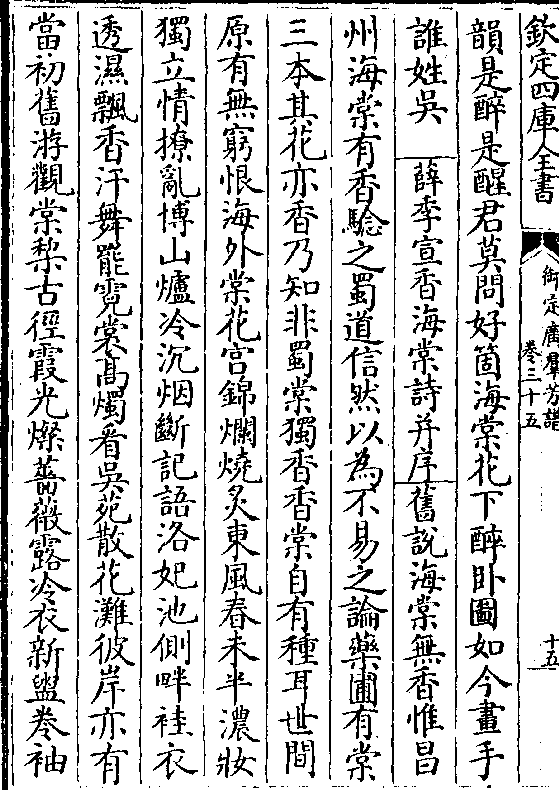 欽定四庫全書
御定廣羣芳譜
卷三十五
十五
韻是醉是醒君莫問好箇海棠花下醉卧圖如今畫手
誰姓吳
薛季宣香海棠詩并序
舊說海棠無香惟昌
州海棠有香驗之蜀道信然以為不易之論藥圃有棠
三本其花亦香乃知非蜀棠獨香香棠自有種耳世間
原有無窮恨海外棠花宫錦爛燒炙東風春未半濃妝
獨立情撩亂博山爐冷沉烟斷記語洛妃池側畔袿衣
透濕飄香汗舞罷霓裳髙燭看吳苑散花灘彼岸亦有
當初舊游觀棠棃古徑霞光燦薔薇露冷衣新盥卷袖